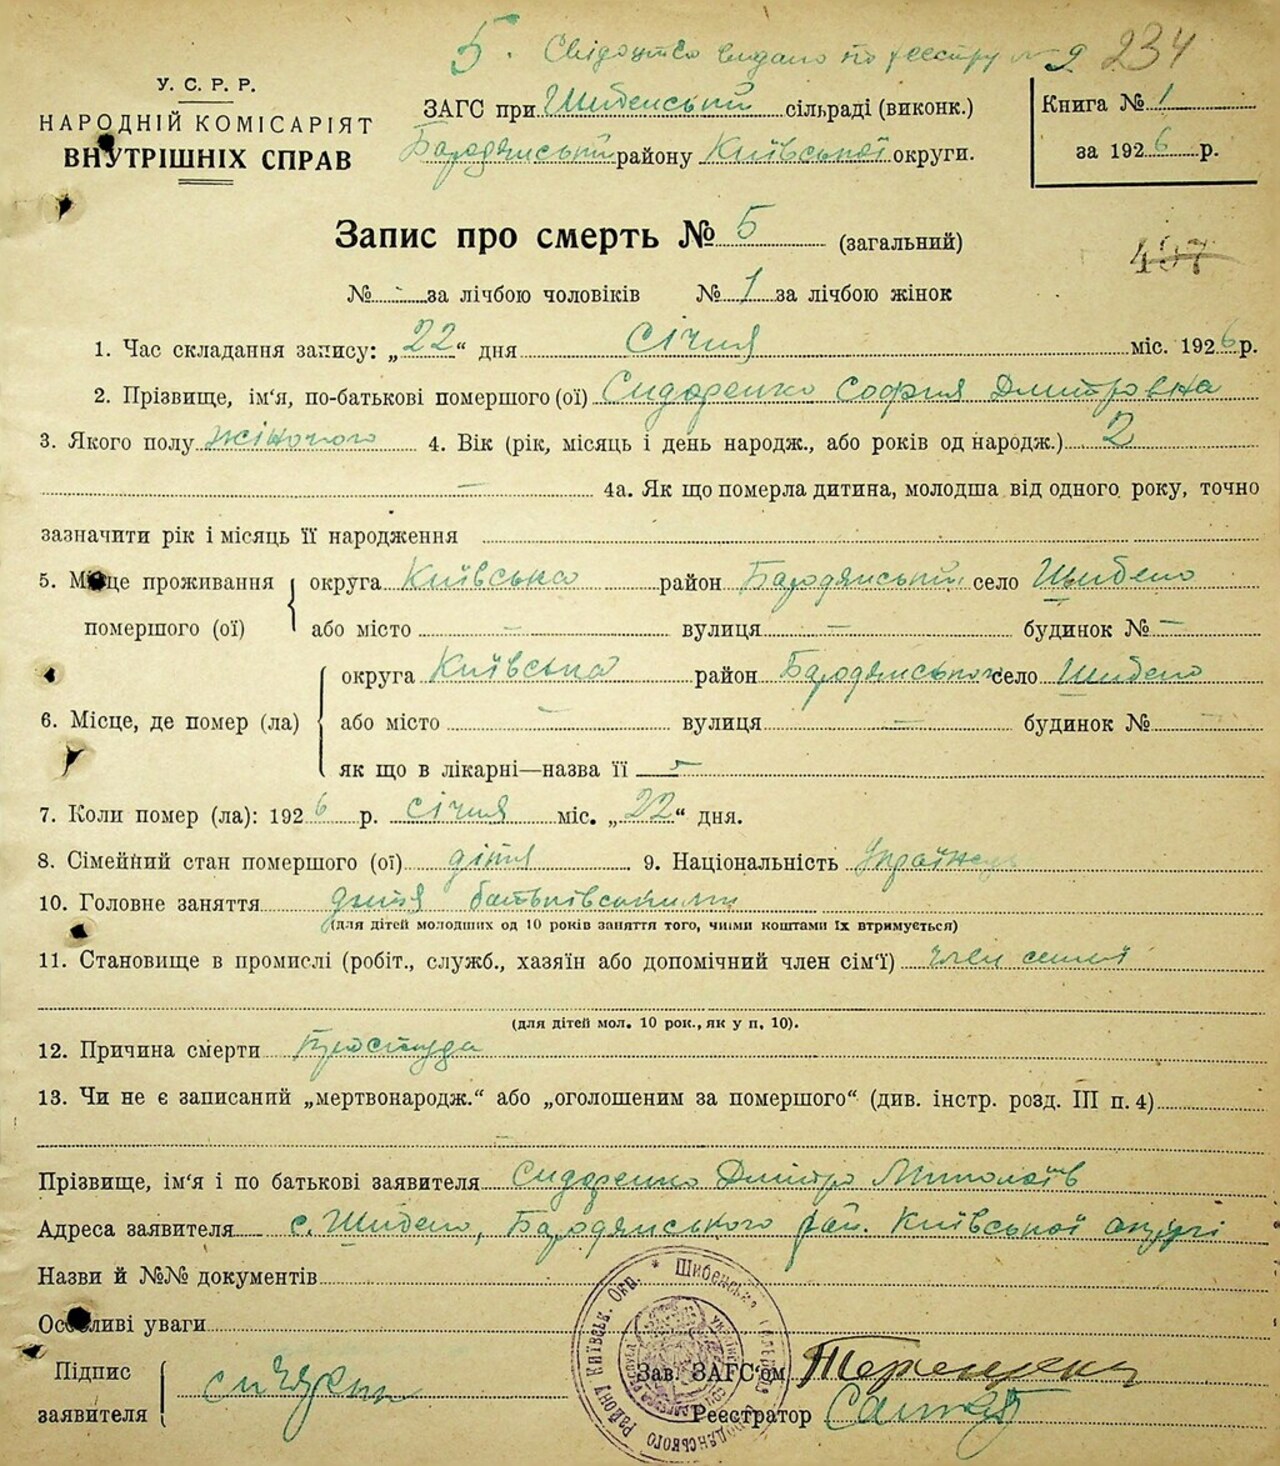 5. Свідоцтво видано по реестру №9 234
У. С. Р. Р.
НАРОДНІЙ КОМІСАРІЯТ
ВНУТРІШНІХ СПРАВ
ЗАГС при Шибенській сільраді (виконк.)
Бородянський району Київської округи.
Книга № 1
за 1926 р.
Запис про смерть № 5 (загальний)
457
№ - за лічбою чоловіків № 1 за лічбою жінок
1. Час складання запису: „22“ дня Січня міс. 1926 р.
2. Прізвище, ім'я, по-батькові помершого (ої) Сидоренко София Дмитровна
3. Якого полу жіночого 4. Вік (рік, місяць і день народж., або років од народж.) 2
— 4а. Як що померла дитина, молодша від одного року, точно
зазначити рік і місяць її народження
5. Місце проживання помершого (ої) округа Київська район Бородянський село Шибено
або місто — вулиця — будинок № —
6. Місце, де помер (ла) округа Київська район Бородянського село Шибено
або місто — вулиця — будинок № —
як що в лікарні—назва її —
7. Коли помер (ла): 1926 р. січня міс. „22“ дня.
8. Сімейний стан помершого (ої) дітя 9. Національність Українець
10. Головне заняття дитя батьківськими
(для дітей молодших од 10 років заняття того, чиїми коштами їх втримується)
11. Становище в промислі (робіт., служб., хазяїн або допомічний член сім'ї) член семиї
(для дітей мол. 10 рок., як у п. 10).
12. Причина смерти Простуда
13. Чи не є записаний „мертвонародж.“ або „оголошеним за помершого“ (див. інстр. розд. III п. 4)
Прізвище, ім'я і по батькові заявителя Сидоренко Дмітро Миколаїв
Адреса заявителя с. Шибено, Бородянського рай. Київської округі
Назви й №№ документів
Особливі уваги
Підпис заявителя
Зав. ЗАГС'ом
Реєстратор
* Шибенська сільрада Бородянського району Київськ. Окр.